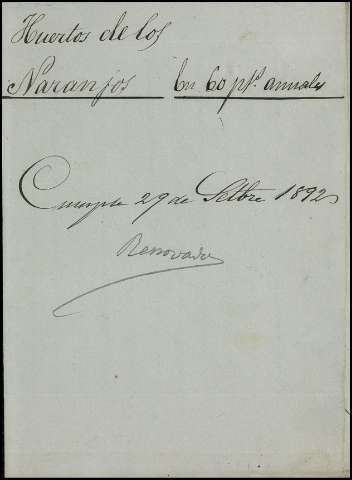 Huertos de los
Naranjos En 60 pts. anuales
Cumple 29 de Setbre 1892
Renovado